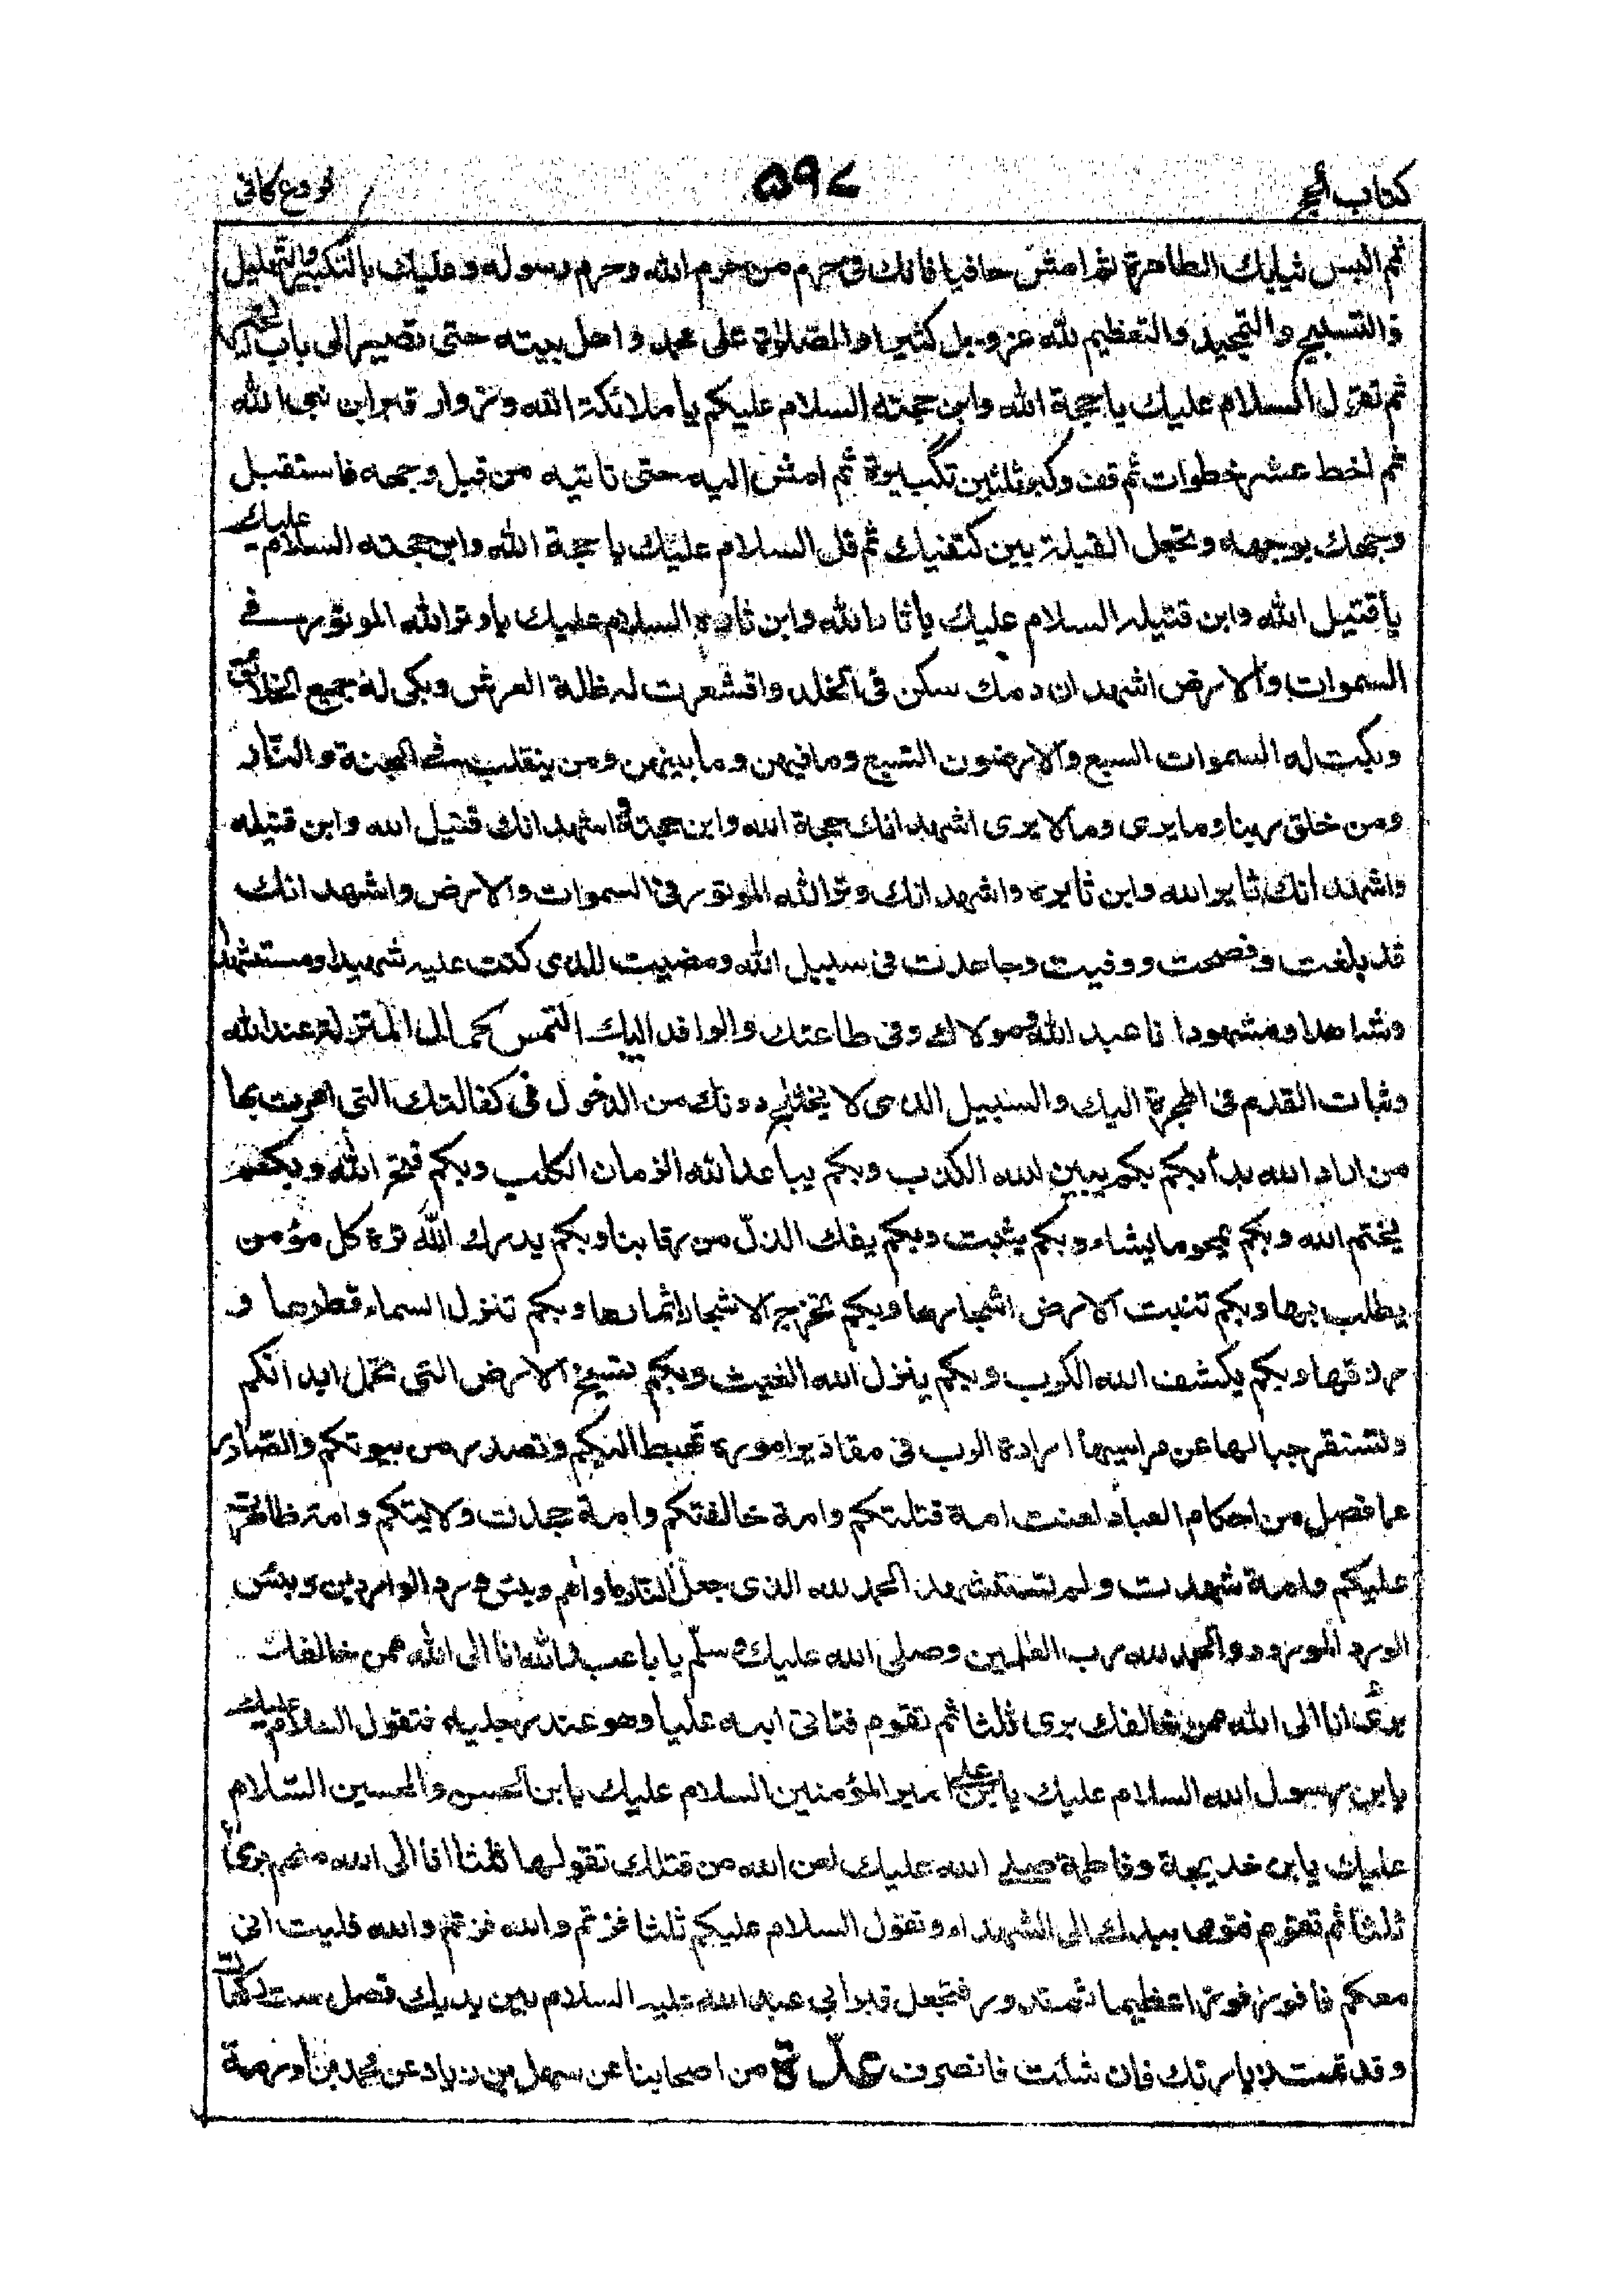 كتاب الحج
٥٩٧
فروع كافى
ثم البس ثيابك الطاهرة ثم امش حافيا فانك فى حرم من حرم الله وحرم رسوله وعليك بالتكبير والتهليل
والتسبيح والتمجيد والتعظيم لله عز وجل كثيرا والصلوة على محمد واهل بيته حتى تصير الى باب الحير
ثم تقول السلام عليك يا حجة الله وابن حجته السلام عليكم يا ملائكة الله وزوار قبر ابن نبى الله
ثم اخط عشر خطوات ثم قف وكبر ثلثين تكبيرة ثم امش اليه حتى تاتيه من قبل وجهه فاستقبل
وجهك بوجهه وتجعل القبلة بين كتفيك ثم قل السلام عليك يا حجة الله وابن حجته السلام عليك
يا قتيل الله وابن قتيله السلام عليك يا ثار الله وابن ثاره السلام عليك يا وتر الله الموتور فى
السموات والارض اشهد ان دمك سكن فى الخلد واقشعرت له اظلة العرش وبكى له جميع الخلائق
وبكت له السموات السبع والارضون السبع وما فيهن وما بينهن ومن ينقلب فى الجنة والنار
ومن خلق ربنا وما يرى وما لا يرى اشهد انك حجة الله وابن حجته واشهد انك قتيل الله وابن قتيله
واشهد انك ثاير الله وابن ثايره واشهد انك وتر الله الموتور فى السموات والارض واشهد انك
قد بلغت ونصحت ووفيت وجاهدت فى سبيل الله ومضيت للذى كنت عليه شهيدا ومستشهدا
وشاهدا ومشهودا انا عبد الله ومولاك وفى طاعتك والوافد اليك التمس كمال المنزلة عند الله
وثبات القدم فى الهجرة اليك والسبيل الذى لا يختلج دونك من الدخول فى كفالتك التى امرت بها
من اراد الله بدأ بكم بكم يبين الله الكذب وبكم يباعد الله الزمان الكلب وبكم فتح الله وبكم
يختم الله وبكم يمحو ما يشاء وبكم يثبت وبكم يفك الذلّ من رقابنا وبكم يدرك الله ترة كل مؤمن
يطلب بها وبكم تنبت الارض اشجارها وبكم تخرج الاشجار اثمارها وبكم تنزل السماء قطرها و
رزقها وبكم يكشف الله الكرب وبكم ينزل الله الغيث وبكم تسيخ الارض التى تحمل ابدانكم
وتستقر جبالها عن مراسيها ارادة الرب فى مقادير اموره تهبط اليكم وتصدر من بيوتكم والصادر
عما فصل من احكام العباد لعنت امة قتلتكم وامة خالفتكم وامة جحدت ولايتكم وامة ظاهرت
عليكم وامة شهدت ولم تستشهد الحمد لله الذى جعل النار ماواهم وبئس ورد الواردين وبئس
الورد المورود والحمد لله رب العالمين وصلى الله عليك وسلّم يا با عبد الله انا الى الله ممن خالفك
برئ انا الى الله ممن خالفك برى ثلثا ثم تقوم فتاتى ابنه عليا وهو عند رجليه فتقول السلام عليك
يا بن رسول الله السلام عليك يا بن على امير المؤمنين السلام عليك يا بن الحسن والحسين السّلام
عليك يا بن خديجة وفاطمة صلى الله عليك لعن الله من قتلك تقولها ثلثا انا الى الله منهم برئ
ثلثا ثم تقوم فتومى بيدك الى الشهداء وتقول السلام عليكم ثلثا فزتم والله فزتم والله فليت انى
معكم فافوز فوزا عظيما ثم تدور فتجعل قبر ابي عبد الله عليه السلام بين يديك فصل ست ركعات
وقد تمت زيارتك فان شئت فانصرف عدّة من اصحابنا عن سهل بن زياد عن محمد بن اورمة